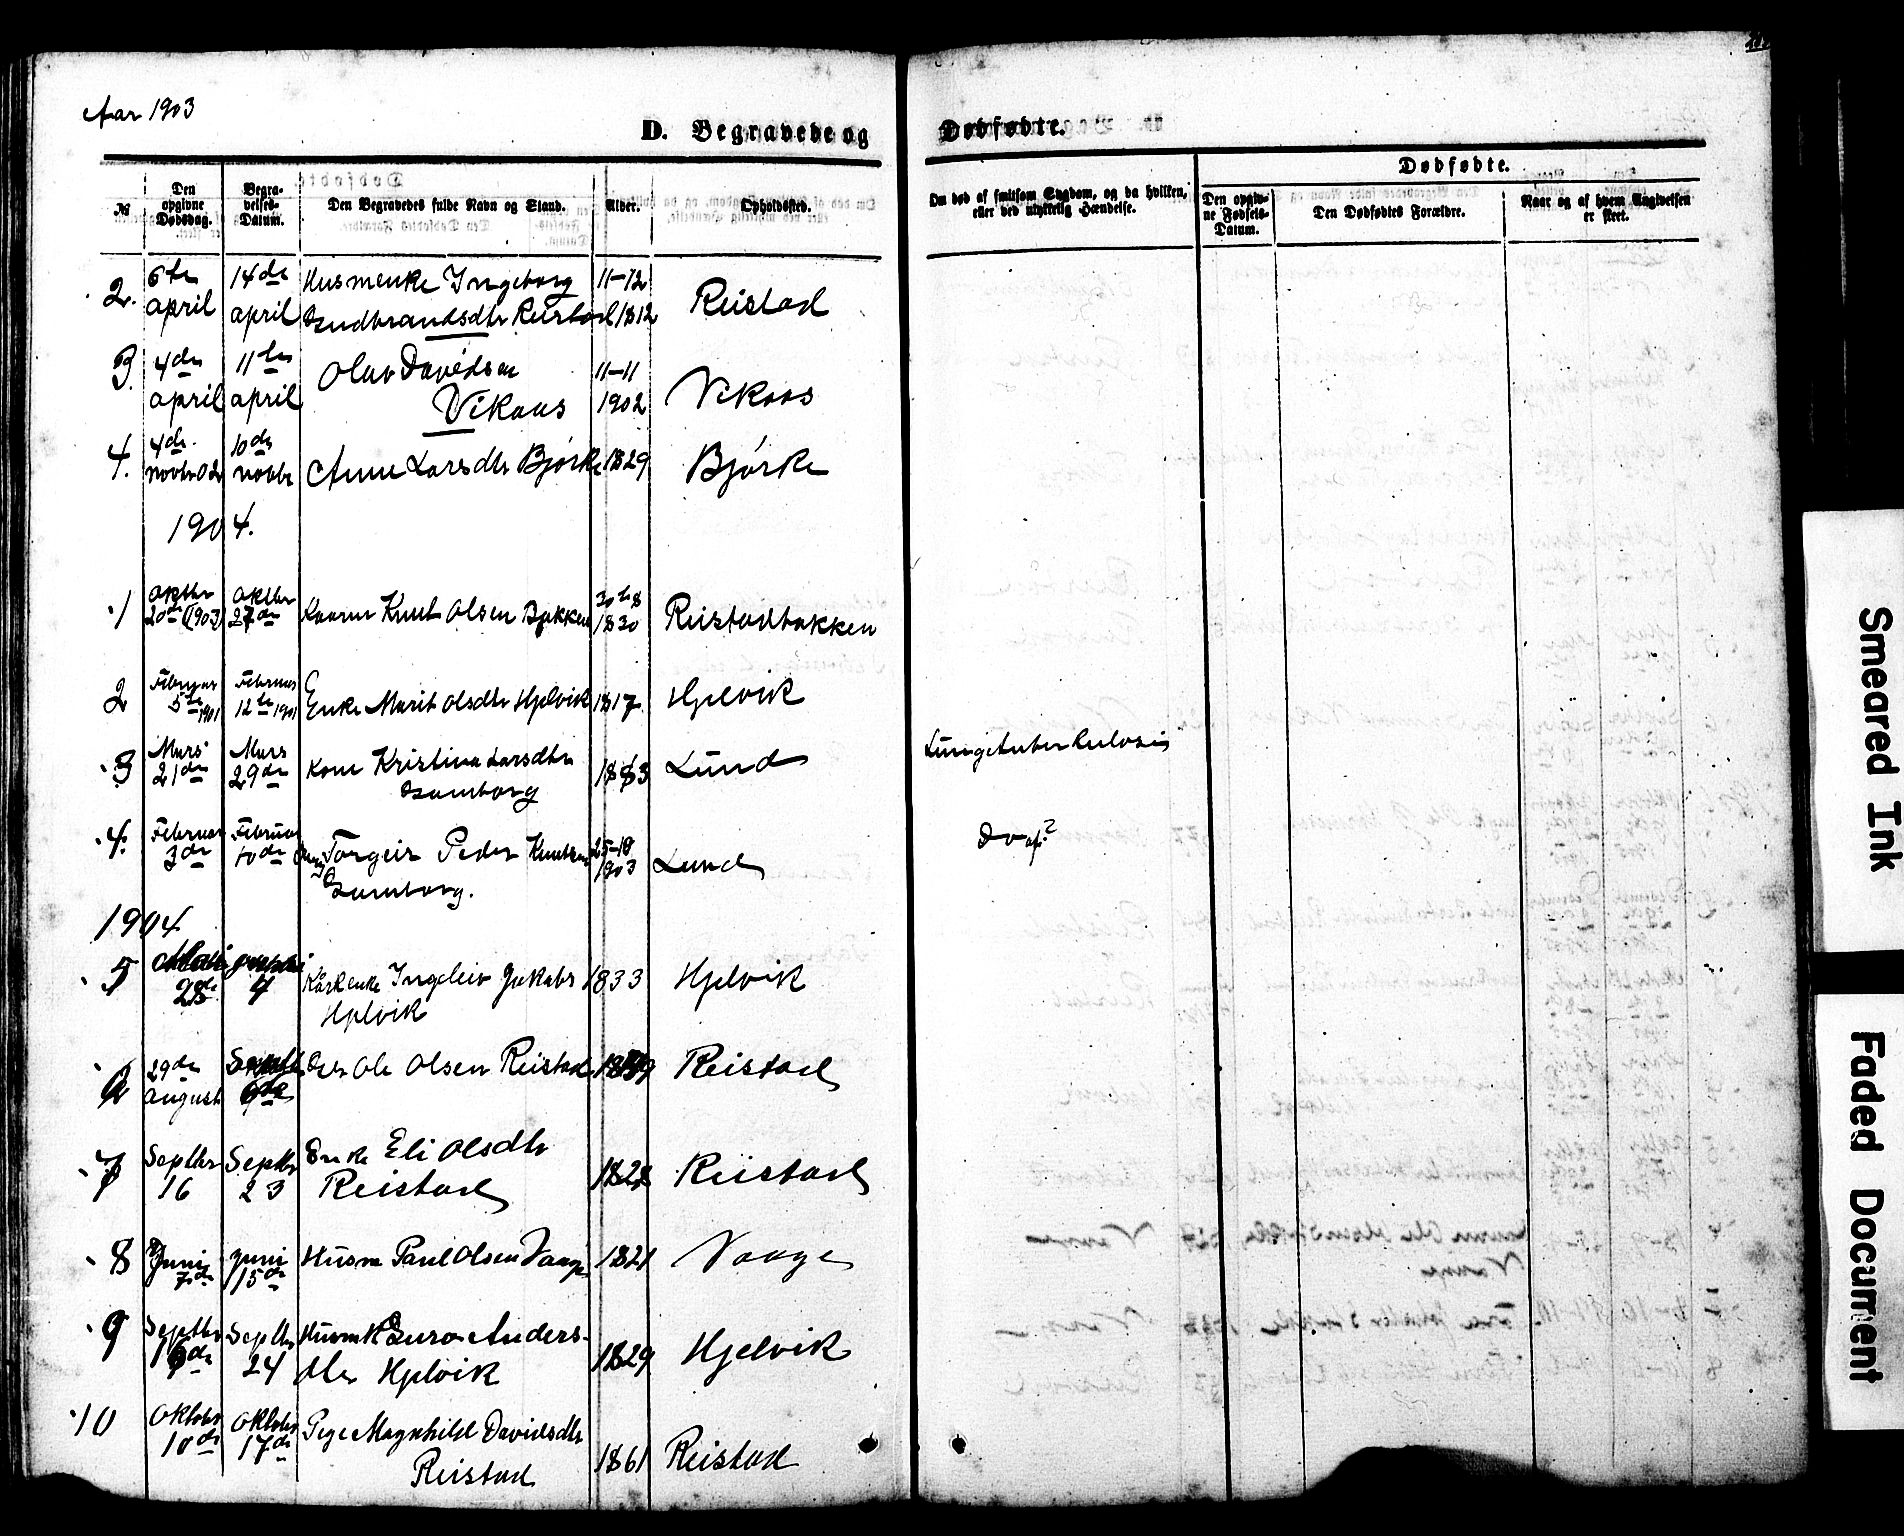 Aar 1903
D. Begravede og Dødfødte.
№
Den opgivne Dødsdag.
Begravelses-Datum.
Den Begravedes fulde Navn og Stand.
Alder.
Opholdssted.
Om død af smitsom Sygdom, og da hvilken, eller ved ulykkelig Hændelse.
Dødfødte.
Den opgivne Fødsels-Datum.
Den Dødfødtes Forældre.
Naar og af hvem Angivelsen er skeet.
2. 6te april 14de april Husmenke Ingeborg Gudbrandsdtr Reistad 11-12 1812 Reistad
3. 4de april 11te april Olav Davidsen Vikaas 11-11 1902 Vikaas
4. 4de novbr 02 10de novbr Anne Larsdtr Bjørke 1829 Bjørke
1904.
1 Oktbr 20de (1903) Oktbr 27de Kaarm Knut Olsen Bakken 1830 Reistadbakken
2 Februar 5te 1901 Februar 12te 1901 Enke Marit Olsdtr Hjelvik 1817 Hjelvik
3 Mars 21de Mars 29de Kone Kristina Larsdtr Gamborg 1883 Lund Lungetuberkulosis
4. Februar 3de Februar 10de Torgeir Peder Knutsen Gamborg. 25-18 1903 Lund Do
1904
5 28de 4 Kaarenke Ingeleiv Jakobs Hjelvik 1833 Hjelvik
6 29de August Septbr 6de Ole Olsen Reistad Reistad
7 Septbr 16 Septbr 23 Enke Eli Olsdtr Reistad 1828 Reistad
8 Juni 7de Juni 15de Husm Paul Olsen Vaage 1821 Vaage
9 Septbr 16de Septbr 24 Husmk Guro Andersdtr Hjelvik 1829 Hjelvik
10 Oktobr 10de Oktobr 17de Pige Magnhild Davidsdtr Reistad 1861 Reistad
Smeared Ink
Faded Document